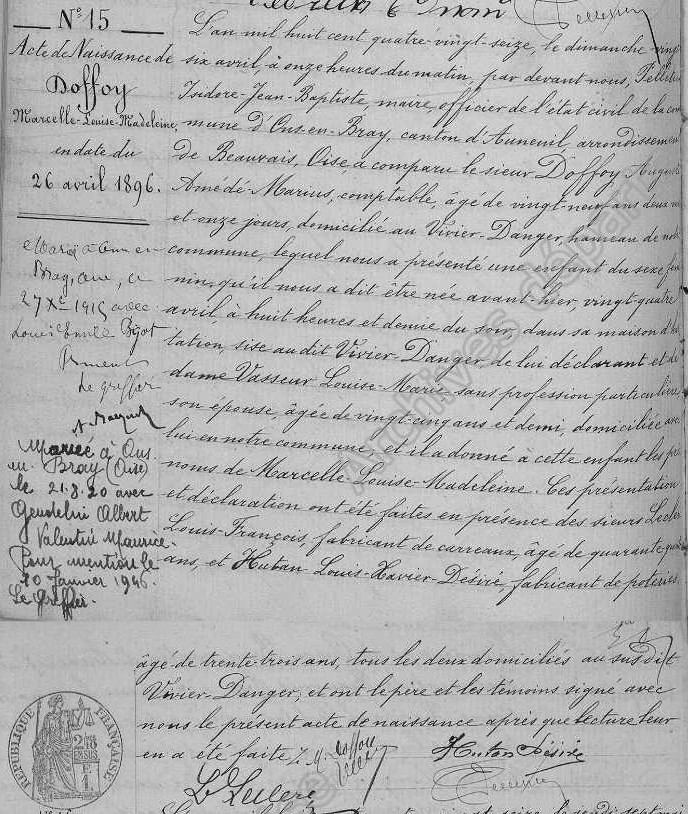 N° 15
Acte de Naissance de
Doffoy
Marcelle-Louise-Madeleine,
en date du
26 avril 1896.
L'an mil huit cent quatre-vingt-seize, le dimanche vingt
six avril, à onze heures du matin, par devant nous,
Isidore-Jean-Baptiste, maire, officier de l'état civil de la com
mune d'Ons-en-Bray, canton d'Auneuil, arrondissement
de Beauvais, Oise, a comparu le sieur Doffoy, Auguste
Amédé-Marius, comptable, âgé de vingt-neuf ans deux
et onze jours, domicilié au Vivier-Danger, hameau de notre
commune, lequel nous a présenté une enfant du sexe fémi
nin, qu'il nous a dit être née avant-hier, vingt-quatre
avril, à huit heures et demie du soir, dans sa maison d'habi
tation, sise au dit Vivier-Danger, de lui déclarant et de
dame Vasseur Louise-Marie, sans profession particulière,
son épouse, âgée de vingt-cinq ans et demi, domiciliée avec
lui en notre commune, et il a donné à cette enfant les pré
noms de Marcelle-Louise-Madeleine. Ces présentation
et déclaration ont été faites en présence des sieurs Leclerc
Louis-François, fabricant de carreaux, âgé de quarante
ans, et Hutan Louis-Xavier-Désiré, fabricant de poteries,
âgé de trente-trois ans, tous les deux domiciliés au susdit
Vivier-Danger, et ont le père et les témoins signé avec
nous le présent acte de naissance après que lecture leur
en a été faite.
Doffoy
Désiré
L Leclerc
Bray, Oise, le
27 Xbre 1915 avec
Louis Emile
Le greffier
Mariée à Ons
en Bray (Oise)
le 21.8.20 avec
Albert
Valentin Maurice.
Pour mention le
10 Janvier 1946.
Le Greffier.
RÉPUBLIQUE FRANÇAISE
Archives départ